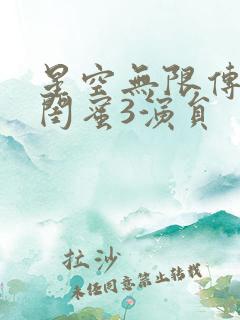 星空無限傳
閨蜜3演員
拉沙
未经同意禁止转载